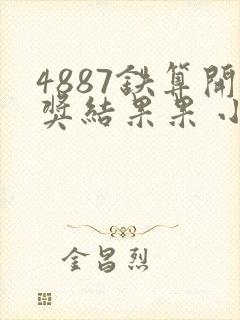 4887鉄算開
奖結果果小
金昌烈